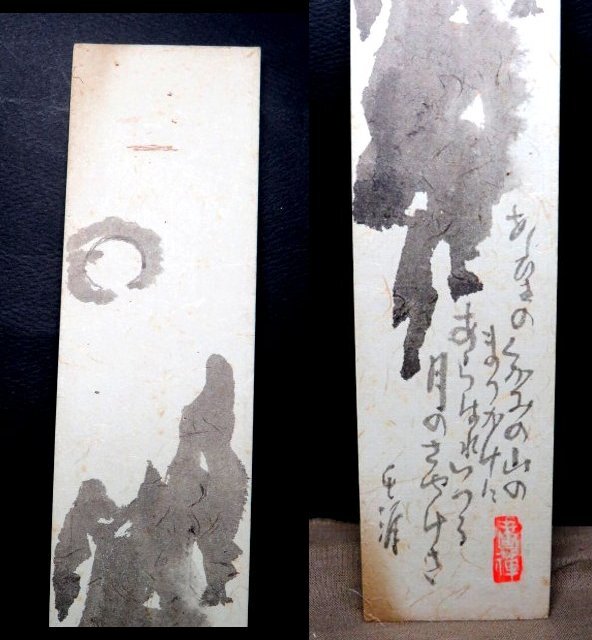 あしひきのくかみの山の
まつかけに
あらはれいつる
月のさやけさ
涯